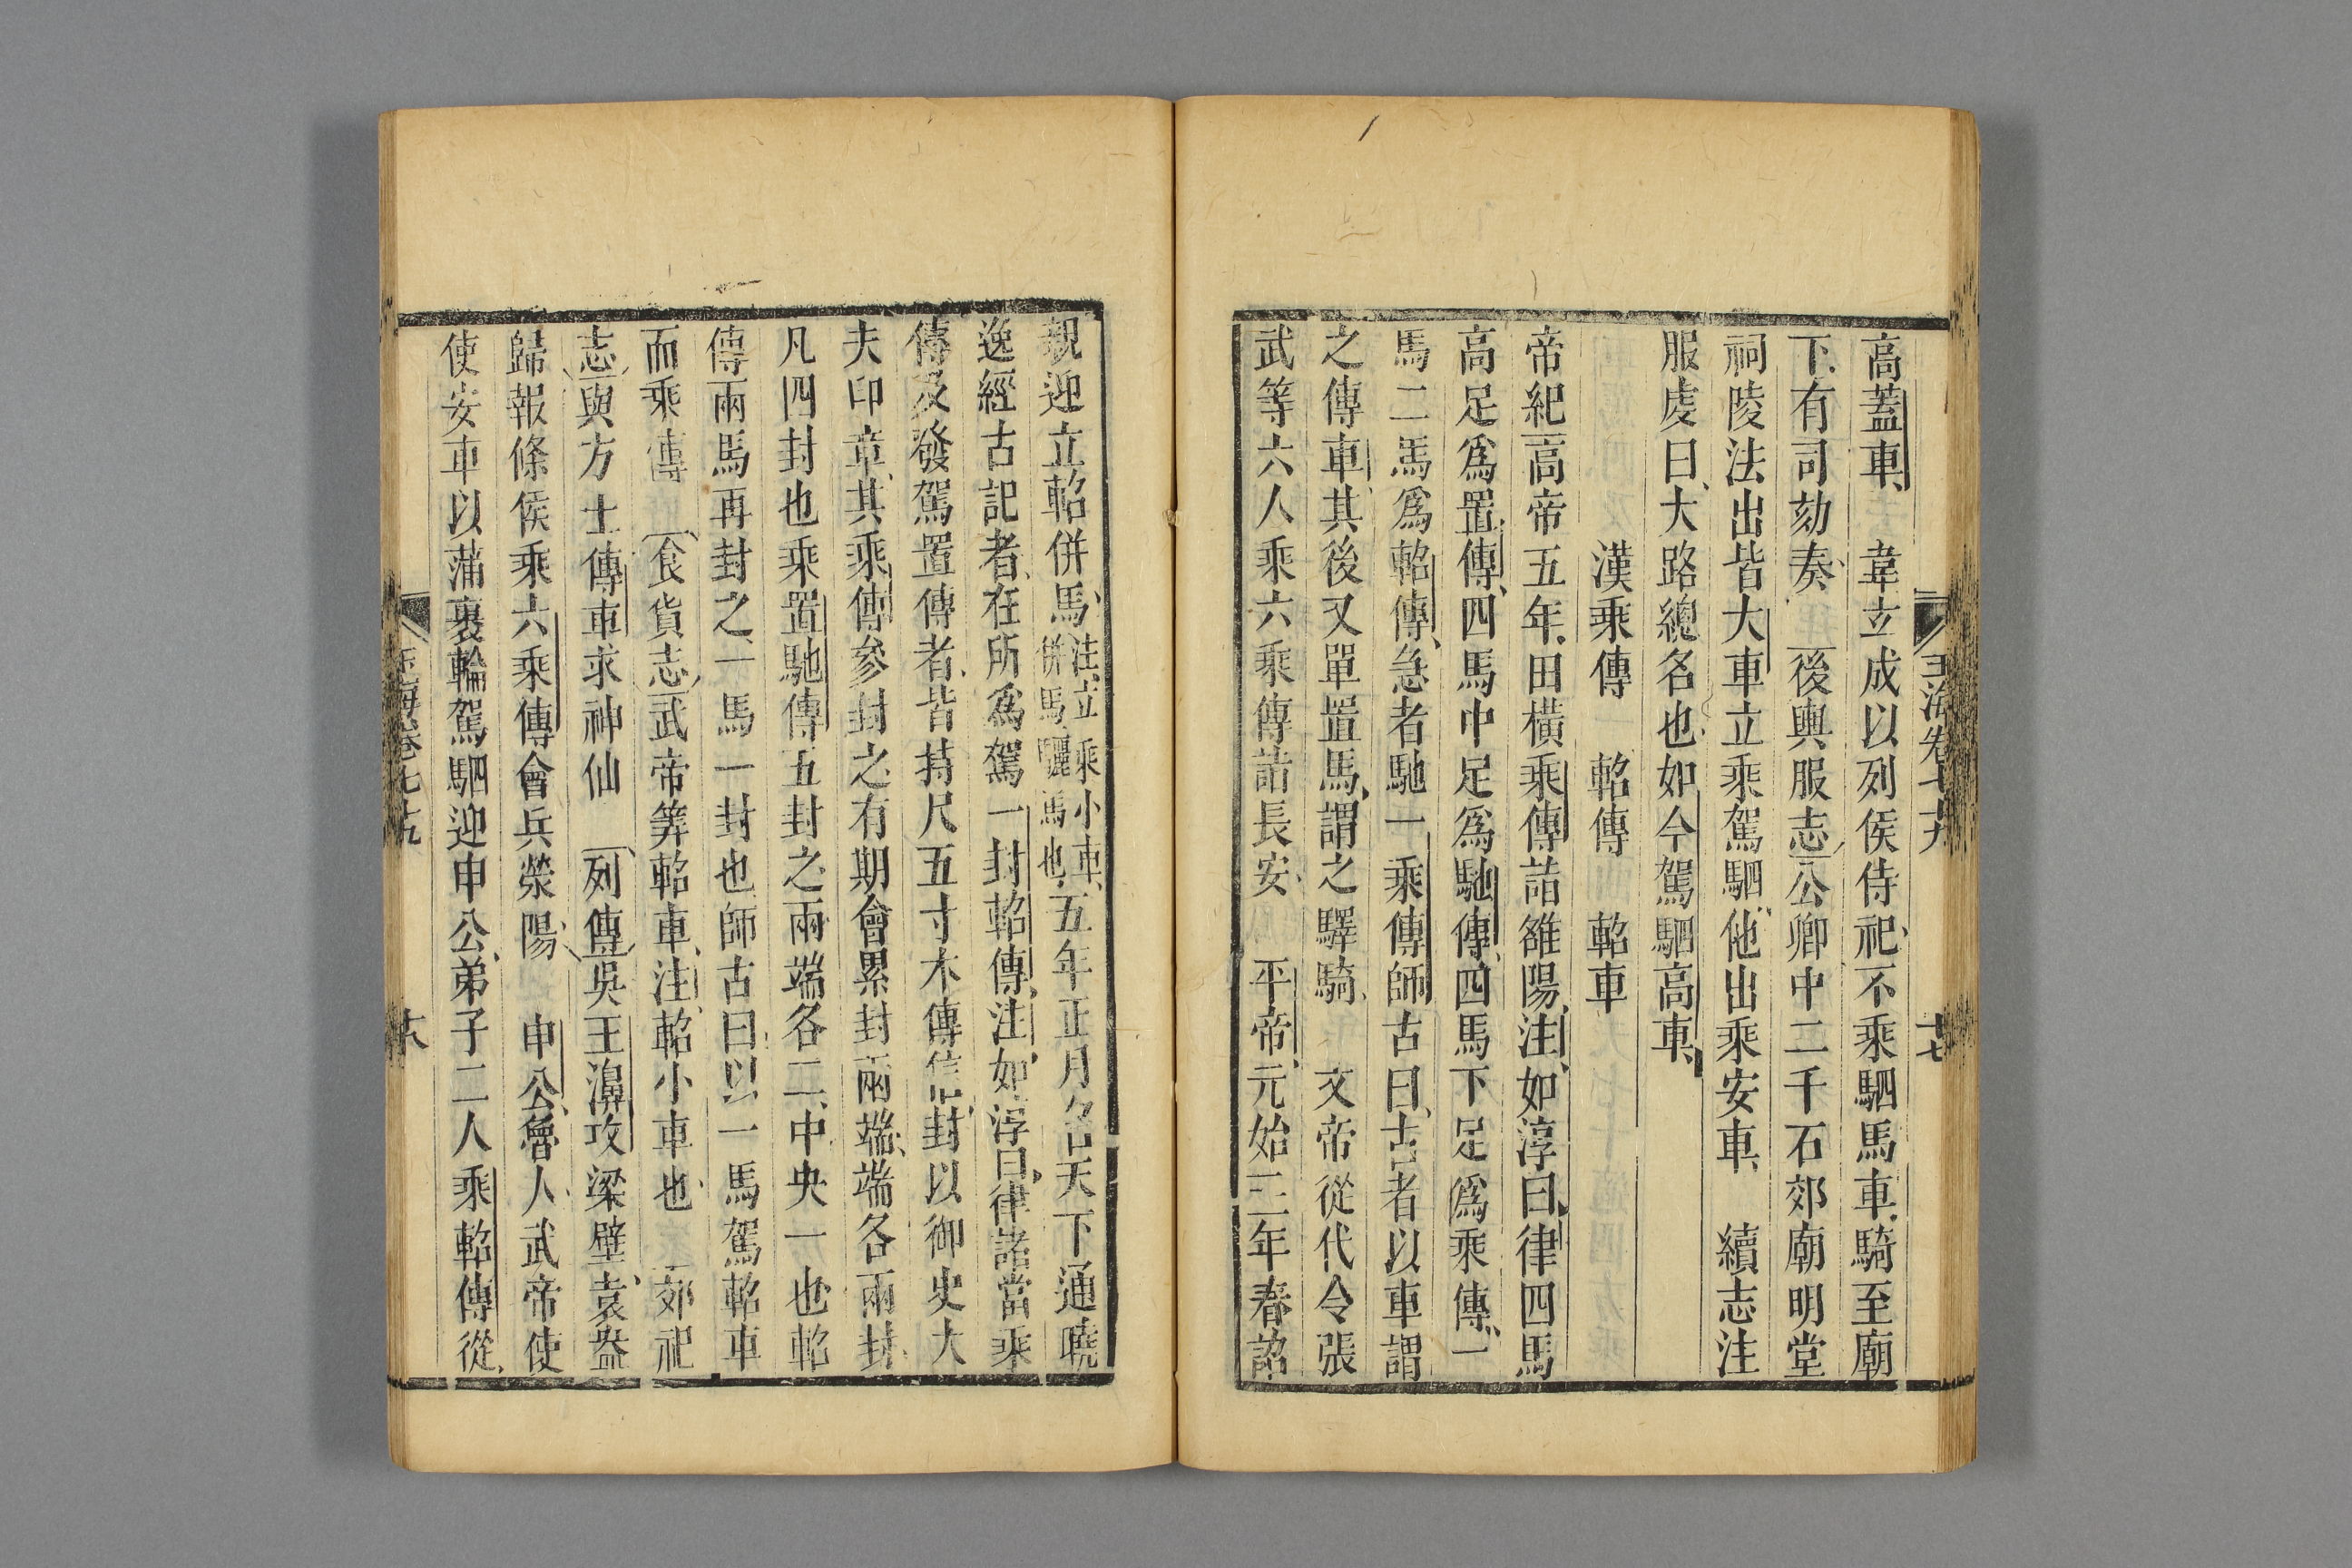 高蓋車 韋玄成以列侯侍祀不乘駟馬車騎至廟
下有司劾奏 後輿服志公卿中二千石郊廟明堂
祠陵法出皆大車立乘駕駟他出乘安車 續志注
服虔曰大路總名也如今駕駟高車
漢乘傳 軺傳 軺車
帝紀高帝五年田橫乘傳詣雒陽注如淳曰律四馬
高足爲置傳四馬中足爲馳傳四馬下足爲乘傳一
馬二馬爲軺傳急者馳一乘傳師古曰古者以車謂
之傳車其後又單置馬謂之驛騎 文帝從代令張
武等六人乘六乘傳詣長安 平帝元始三年春詔
玉海卷七十九 十七
親迎立軺併馬注立乘小車併馬驪馬也五年正月召天下通曉
逸經古記者在所爲駕一封軺傳注如淳曰律諸當乘
傳及發駕置傳者皆持尺五寸木傳信封以御史大
夫印章其乘傳參封之有期會累封兩端端各兩封
凡四封也乘置馳傳五封之兩端各二中央一也軺
傳兩馬再封之一馬一封也師古曰以一馬駕軺車
而乘傳 食貨志武帝筭軺車注軺小車也 郊祀
志與方士傳車求神仙 列傳吳王濞攻梁壁袁盎
歸報條侯乘六乘傳會兵滎陽 申公魯人武帝使
使安車以蒲裹輪駕駟迎申公弟子二人乘軺傳從
玉海卷七十九 十八